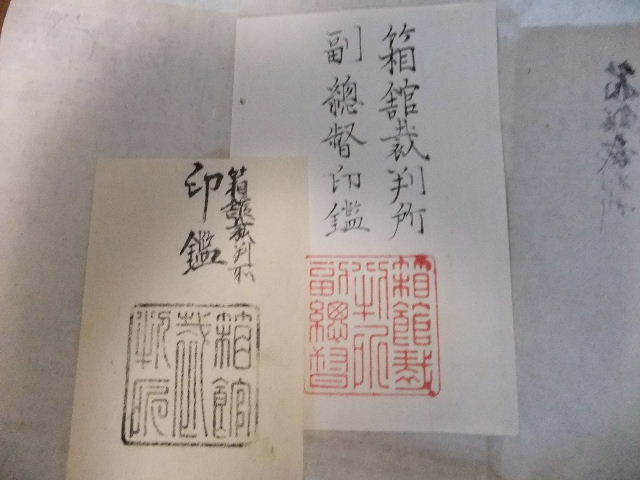 箱舘裁判所
副總督印鑑
箱館裁
判所
副總督
箱舘裁判所
印鑑
箱館
裁
判所